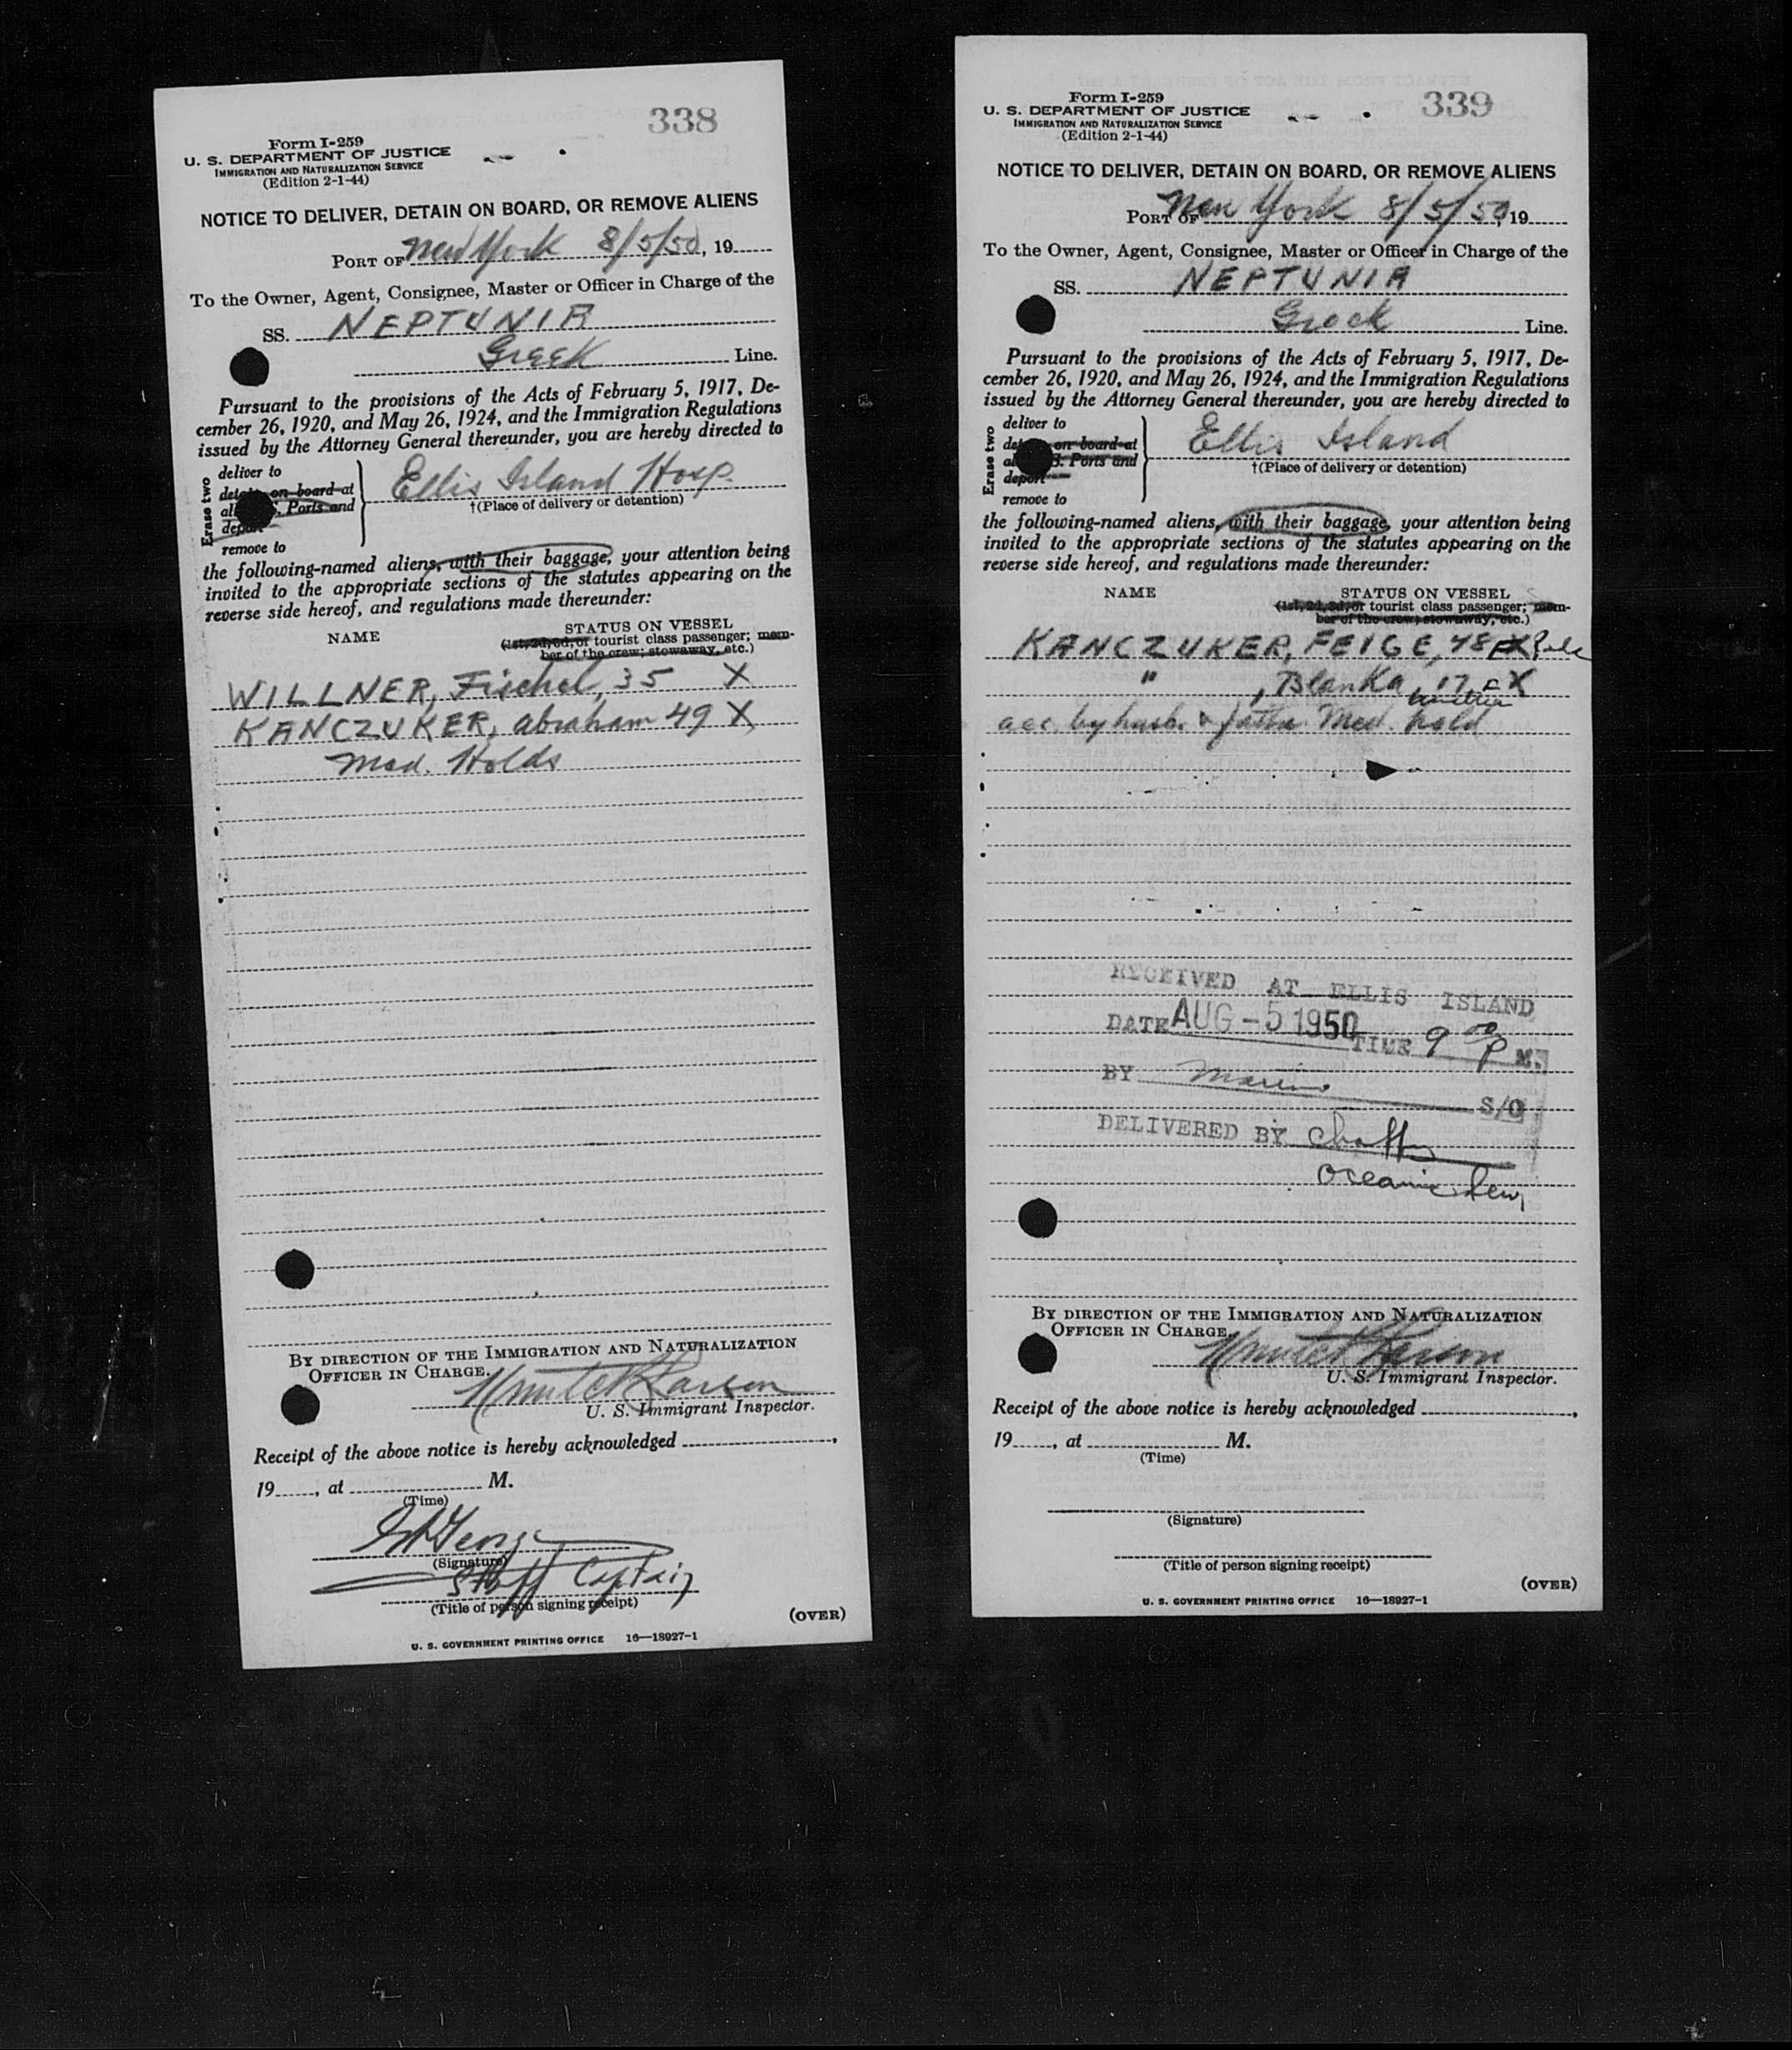 338
Form I-259
U. S. DEPARTMENT OF JUSTICE
IMMIGRATION AND NATURALIZATION SERVICE
(Edition 2-1-44)
NOTICE TO DELIVER, DETAIN ON BOARD, OR REMOVE ALIENS
PORT OF New York 8/5/50, 19
To the Owner, Agent, Consignee, Master or Officer in Charge of the
SS. NEPTUNIA
Greek Line.
Pursuant to the provisions of the Acts of February 5, 1917, De-
cember 26, 1920, and May 26, 1924, and the Immigration Regulations
issued by the Attorney General thereunder, you are hereby directed to
Erase two
deliver to
on board at
Ports and
remove to
Ellis Island Hosp.
†(Place of delivery or detention)
the following-named aliens, with their baggage, your attention being
invited to the appropriate sections of the statutes appearing on the
reverse side hereof, and regulations made thereunder:
NAME STATUS ON VESSEL
(1st, 2d, 3d, or tourist class passenger; mem-
ber of the crew; stowaway, etc.)
WILLNER, Fischel, 35 X
KANCZUKER, Abraham 49 X
Med. Holds
BY DIRECTION OF THE IMMIGRATION AND NATURALIZATION
OFFICER IN CHARGE.
U. S. Immigrant Inspector.
Receipt of the above notice is hereby acknowledged
19, at M.
(Time)
(Signature)
Staff Captain
(Title of person signing receipt)
(OVER)
U. S. GOVERNMENT PRINTING OFFICE 16—18927-1
339
Form I-259
U. S. DEPARTMENT OF JUSTICE
IMMIGRATION AND NATURALIZATION SERVICE
(Edition 2-1-44)
NOTICE TO DELIVER, DETAIN ON BOARD, OR REMOVE ALIENS
PORT OF New York 8/5/50, 19
To the Owner, Agent, Consignee, Master or Officer in Charge of the
SS. NEPTUNIA
Greek Line.
Pursuant to the provisions of the Acts of February 5, 1917, De-
cember 26, 1920, and May 26, 1924, and the Immigration Regulations
issued by the Attorney General thereunder, you are hereby directed to
Erase two
deliver to
on board at
Ports and
deport
remove to
Ellis Island
†(Place of delivery or detention)
the following-named aliens, with their baggage, your attention being
invited to the appropriate sections of the statutes appearing on the
reverse side hereof, and regulations made thereunder:
NAME STATUS ON VESSEL
(1st, 2d, 3d, or tourist class passenger; mem-
ber of the crew; stowaway, etc.)
KANCZUKER, FEIGE, 48 F X Pole
" , Blanka, 17 F X
Austria
acc. by husb. & father Med. hold
RECEIVED AT ELLIS ISLAND
DATE AUG - 5 1950 TIME 9 00 P M.
BY S/O
DELIVERED BY
BY DIRECTION OF THE IMMIGRATION AND NATURALIZATION
OFFICER IN CHARGE.
U. S. Immigrant Inspector.
Receipt of the above notice is hereby acknowledged
19, at M.
(Time)
(Signature)
(Title of person signing receipt)
(OVER)
U. S. GOVERNMENT PRINTING OFFICE 16—18927-1